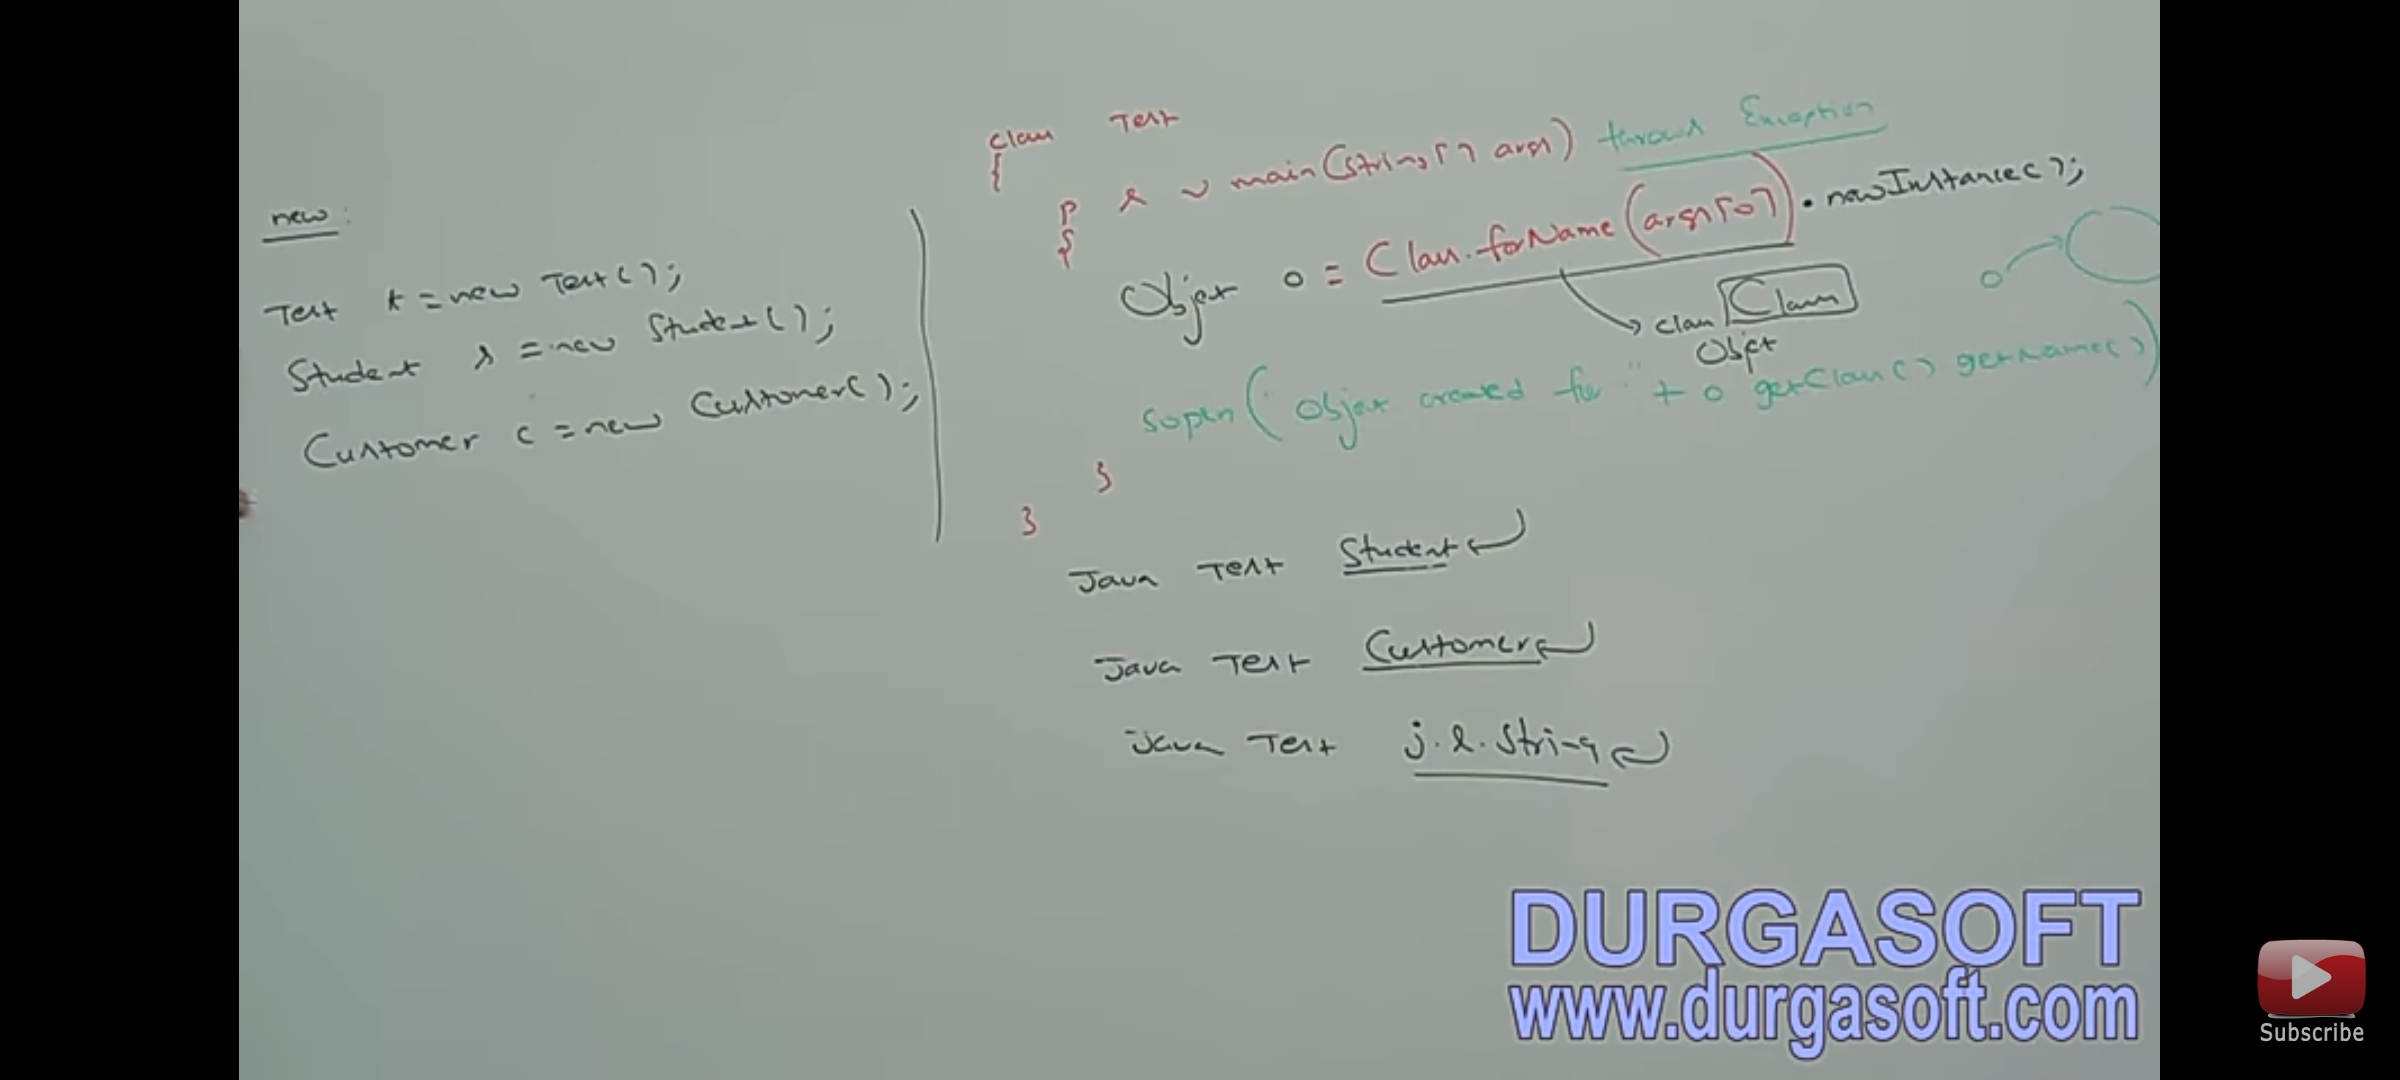 new:
Test t = new Test();
Student s = new Student();
Customer c = new Customer();
class Test
{
p s v main(String[] args) throws Exception
{
Object o = Class.forName(args[0]).newInstance();
class Class
Object
sopln("Object created for " + o getClass() getName()
}
}
Java Test Student
Java Test Customer
Java Test j.l.String
DURGASOFT
www.durgasoft.com
Subscribe